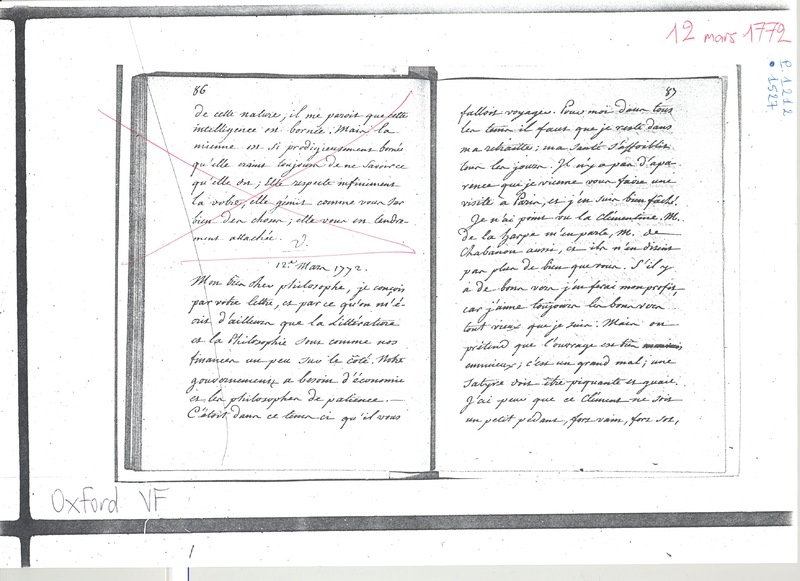 12 mars 1772
P 1212
1527.
86
de cette nature; il me paroit que cette
intelligence est bornée. Mais la
mienne est si prodigieusement bornée
qu'elle craint toujours de ne savoir ce
qu'elle dit; Elle respecte infiniment
la votre, elle gémit comme vous sur
bien des choses; elle vous est tendre
ment attachée. V.
12e. Mars 1772.
Mon bien cher philosophe, je conçois
par votre lettre, et par ce qu'on m'é-
crit d'ailleurs que la Littérature
et la Philosophie sont comme nos
finances un peu sur le côté. Notre
gouvernement a besoin d'économie
et les philosophes de patience. —
C'étoit dans ce tems ci qu'il vous
87
falloit voyager. Pour moi dans tous
les tems il faut que je reste dans
ma retraitte; ma santé s'affoiblit
tous les jours. Il n'y a pas d'apa-
rence que je vienne vous faire une
visite à Paris, et j'en suis bien fâché.
Je n'ai point vu la Clémentine. M.
de la Harpe m'en parle, M. de
Chabanon aussi, et ils n'en disent
pas plus de bien que vous. S'il y
a de bons vers j'en ferai mon profit,
car j'aime toujours les bons vers
tout vieux que je suis. Mais on
prétend que l'ouvrage est
ennuieux; c'est un grand mal; une
satyre doit être piquante et guaie.
J'ai peur que ce Clément ne soit
un petit pédant, fort vain, fort sot,
Oxford VF